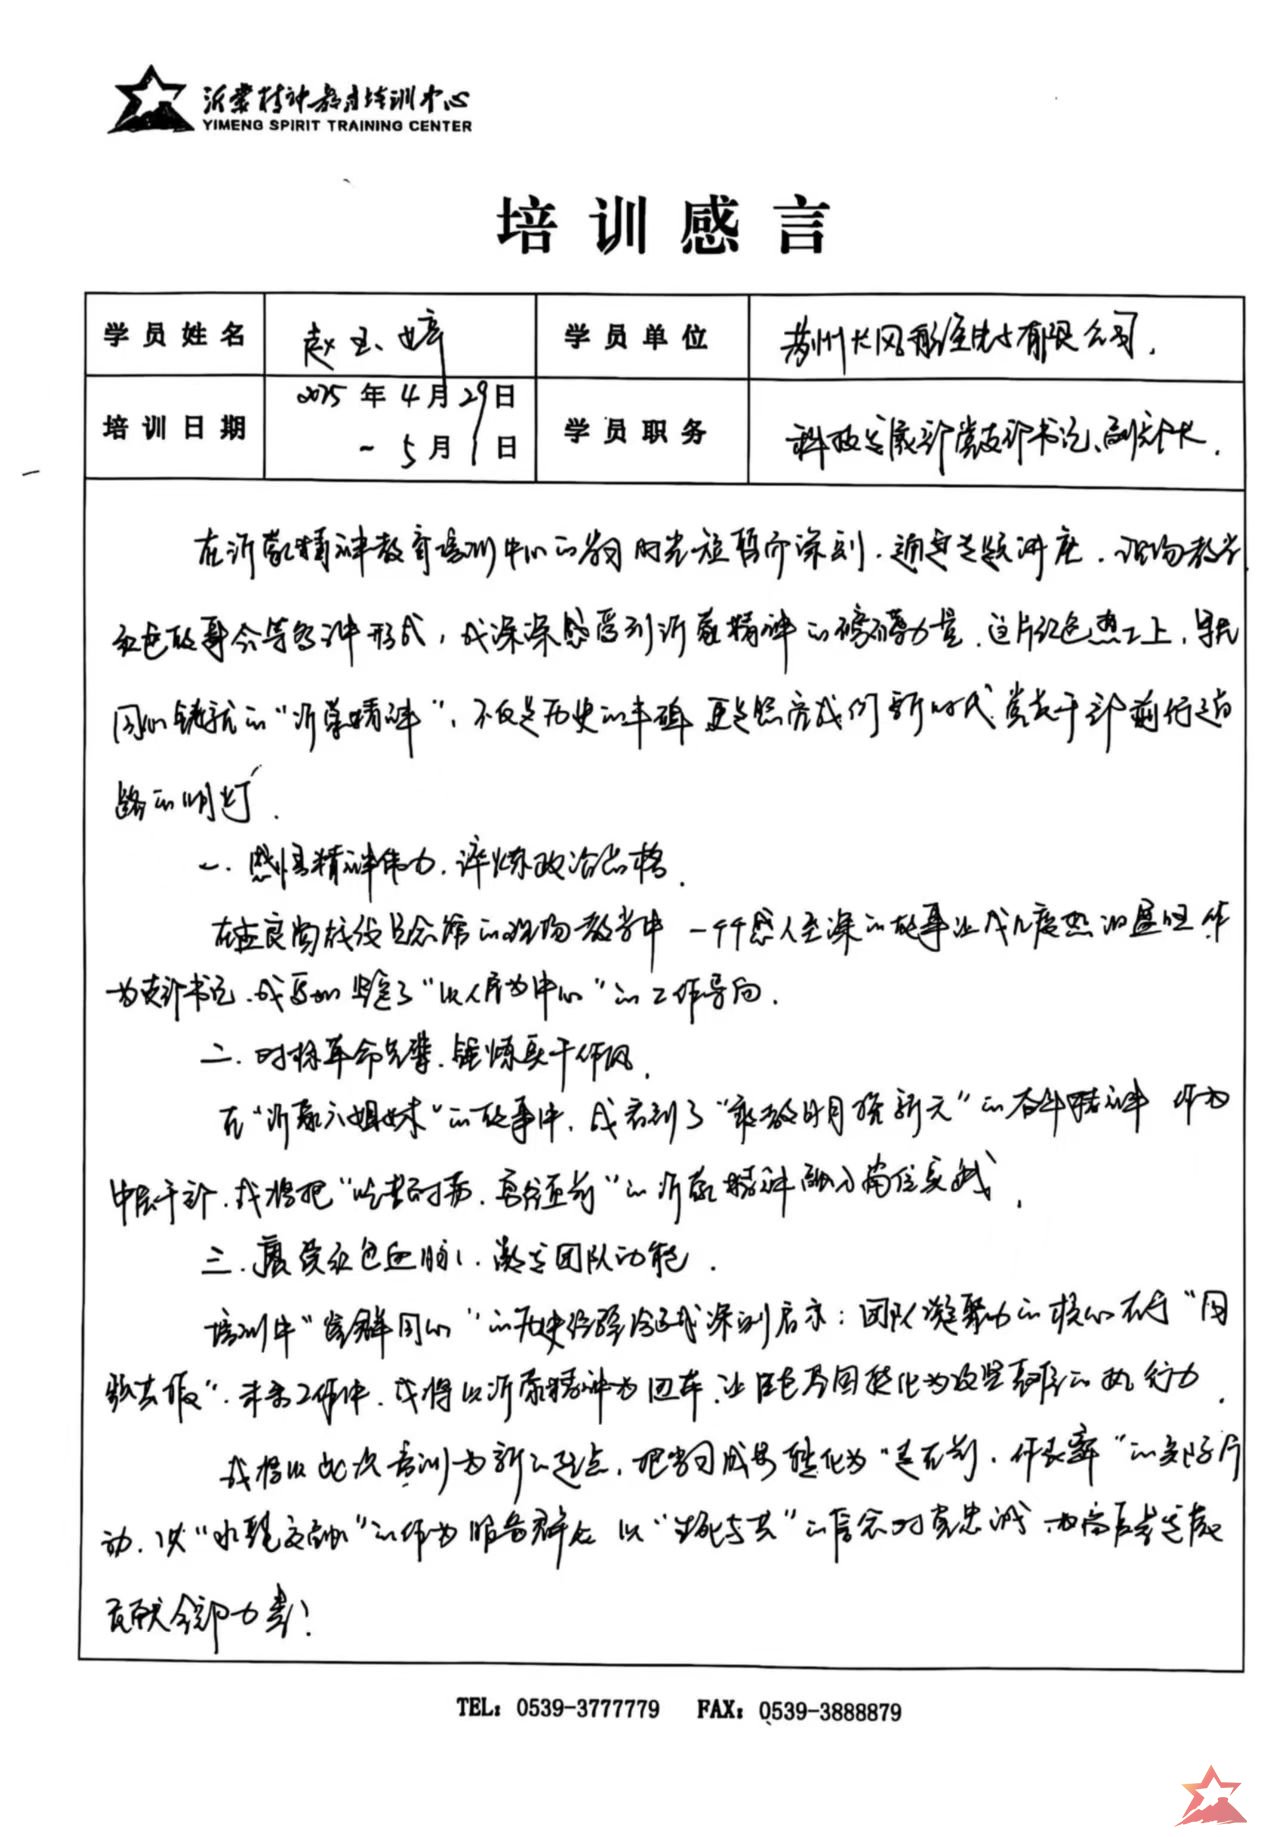 沂蒙精神教育培训中心
YIMENG SPIRIT TRAINING CENTER
培训感言
学员姓名 赵玉婷 学员单位 苏州长风航空电子有限公司.
培训日期 2025年4月29日 ~5月1日 学员职务 科技发展部党支部书记、副部长.
在沂蒙精神教育培训中心的学习时光短暂而深刻.通过专题讲座.现场教学
红色故事会等多种形式,我深深感受到沂蒙精神的磅礴力量.这片红色热土上,军民
同心铸就的“沂蒙精神”,不仅是历史的丰碑 更是照亮我们新时代党员干部前行道
路的明灯.
一.感悟精神伟力.淬炼政治品格.
在孟良崮战役纪念馆的现场教学中 一个个感人至深的故事让我几度热泪盈眶 作
为支部书记.我更加坚定了“以人民为中心”的工作导向.
二.对标革命先辈.锤炼实干作风.
在“沂蒙六姐妹”的故事中,我看到了“敢教日月换新元”的奋斗精神 作为
中层干部.我将把“吃苦耐劳.勇往直前”的沂蒙精神融入岗位实践.
三.赓续红色血脉.凝聚团队动能.
培训中“党群同心”的历史经验给我深刻启示:团队凝聚力的核心在于“同
.未来工作中.我将以沂蒙精神为 .让红色基因转化为攻坚 的执行力.
我将以此次培训为新的起点,把学习成果转化为“走在前.作表率”的实际行
动.以“水乳交融”的作为服务群众 以“生死与共”的信念对党忠诚 为高质量发展
贡献全部力量!
TEL: 0539-3777779 FAX: 0539-3888879